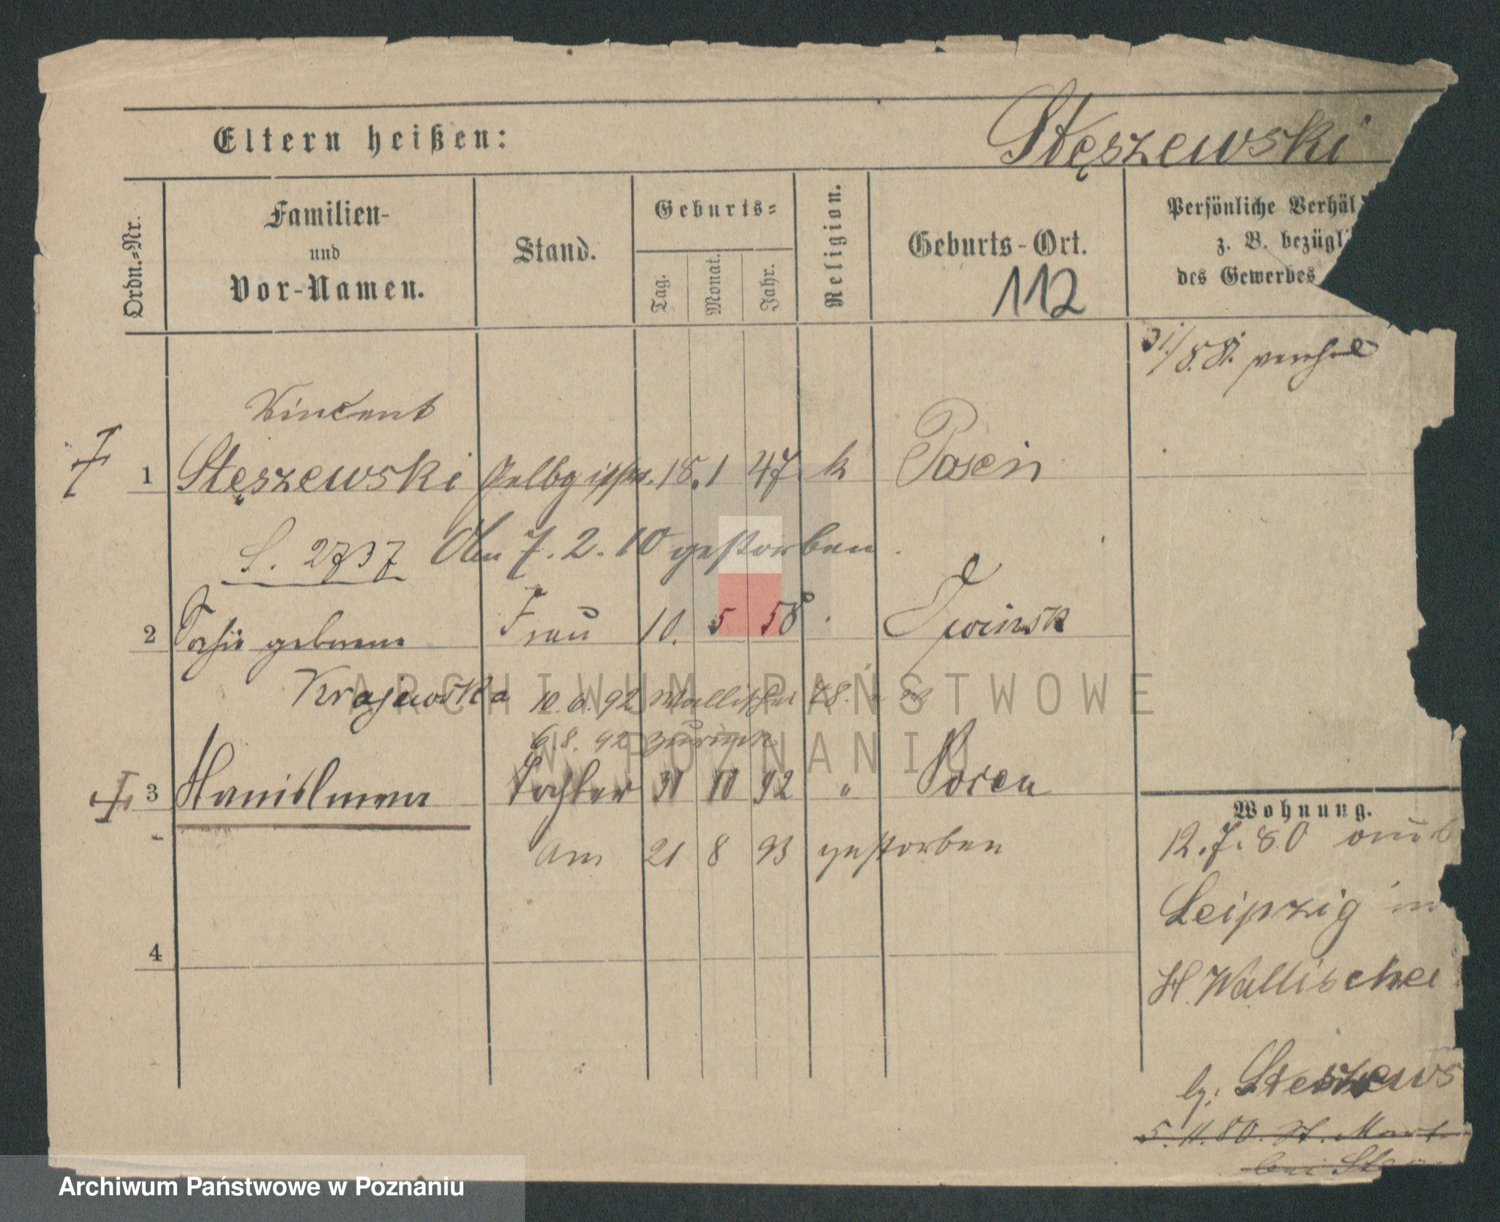 Eltern heißen:
Stęszewski
Ordn.-Nr.
Familien-
und
Vor-Namen.
Stand.
Geburts-
Tag.
Monat.
Jahr.
Religion.
Geburts-Ort.
112
Persönliche Verhäl
z. B. bezügl
des Gewerbes
Vincent
1 Stęszewski Gelbgießer. 18. 1 47 k Posen
S. 2737 Am 7. 2. 10 gestorben.
2 geborene Frau 10. 5 58
Krajewska 10. 6. 92 Wallischei 78.
6. 8. 92 zurück
3 Tochter 31 10 92 " Posen
Am 21 8 93 gestorben
4
Wohnung.
12. 7. 80
Leipzig in
H. Wallischei
Steszews
5. 11. 80. St. Mart
bei St
ARCHIWUM PAŃSTWOWE
W POZNANIU
Archiwum Państwowe w Poznaniu